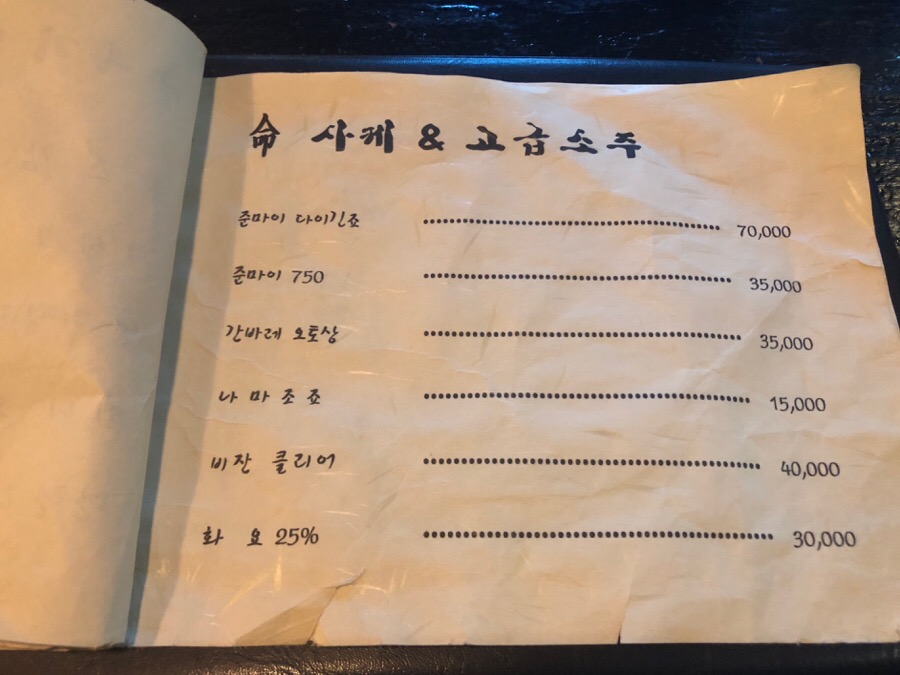 命 사케 & 고급소주
준마이 다이긴죠 70,000
준마이 750 35,000
간바레 오토상 35,000
나 마 조 죠 15,000
비잔 클리어 40,000
화 요 25% 30,000